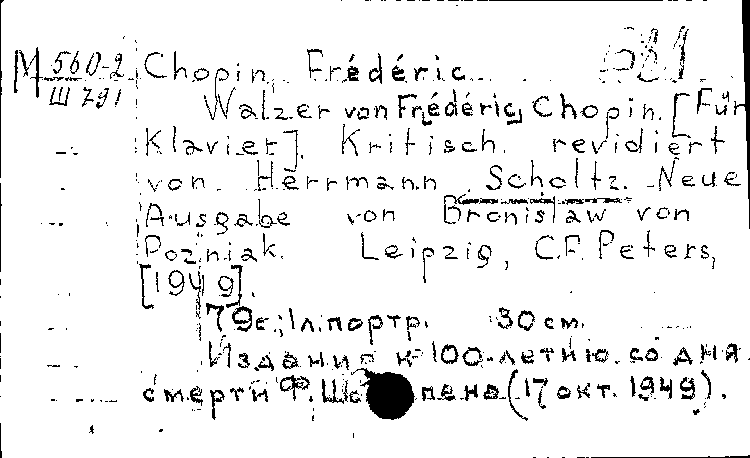 М 560-2 Chopin, Frédéric
Ш 791
Walzer von Frédéric Chopin. [Für
Klavier]. Kritisch revidiert
von Herrmann Scholtz. Neue
Ausgabe von Bronislaw von
Pozniak. Leipzig, C.F. Peters,
[1949].
79 с.; 1 л. портр. 30 см.
Издание к 100-летию со дня
смерти Ф. Шопена (17 окт. 1949).